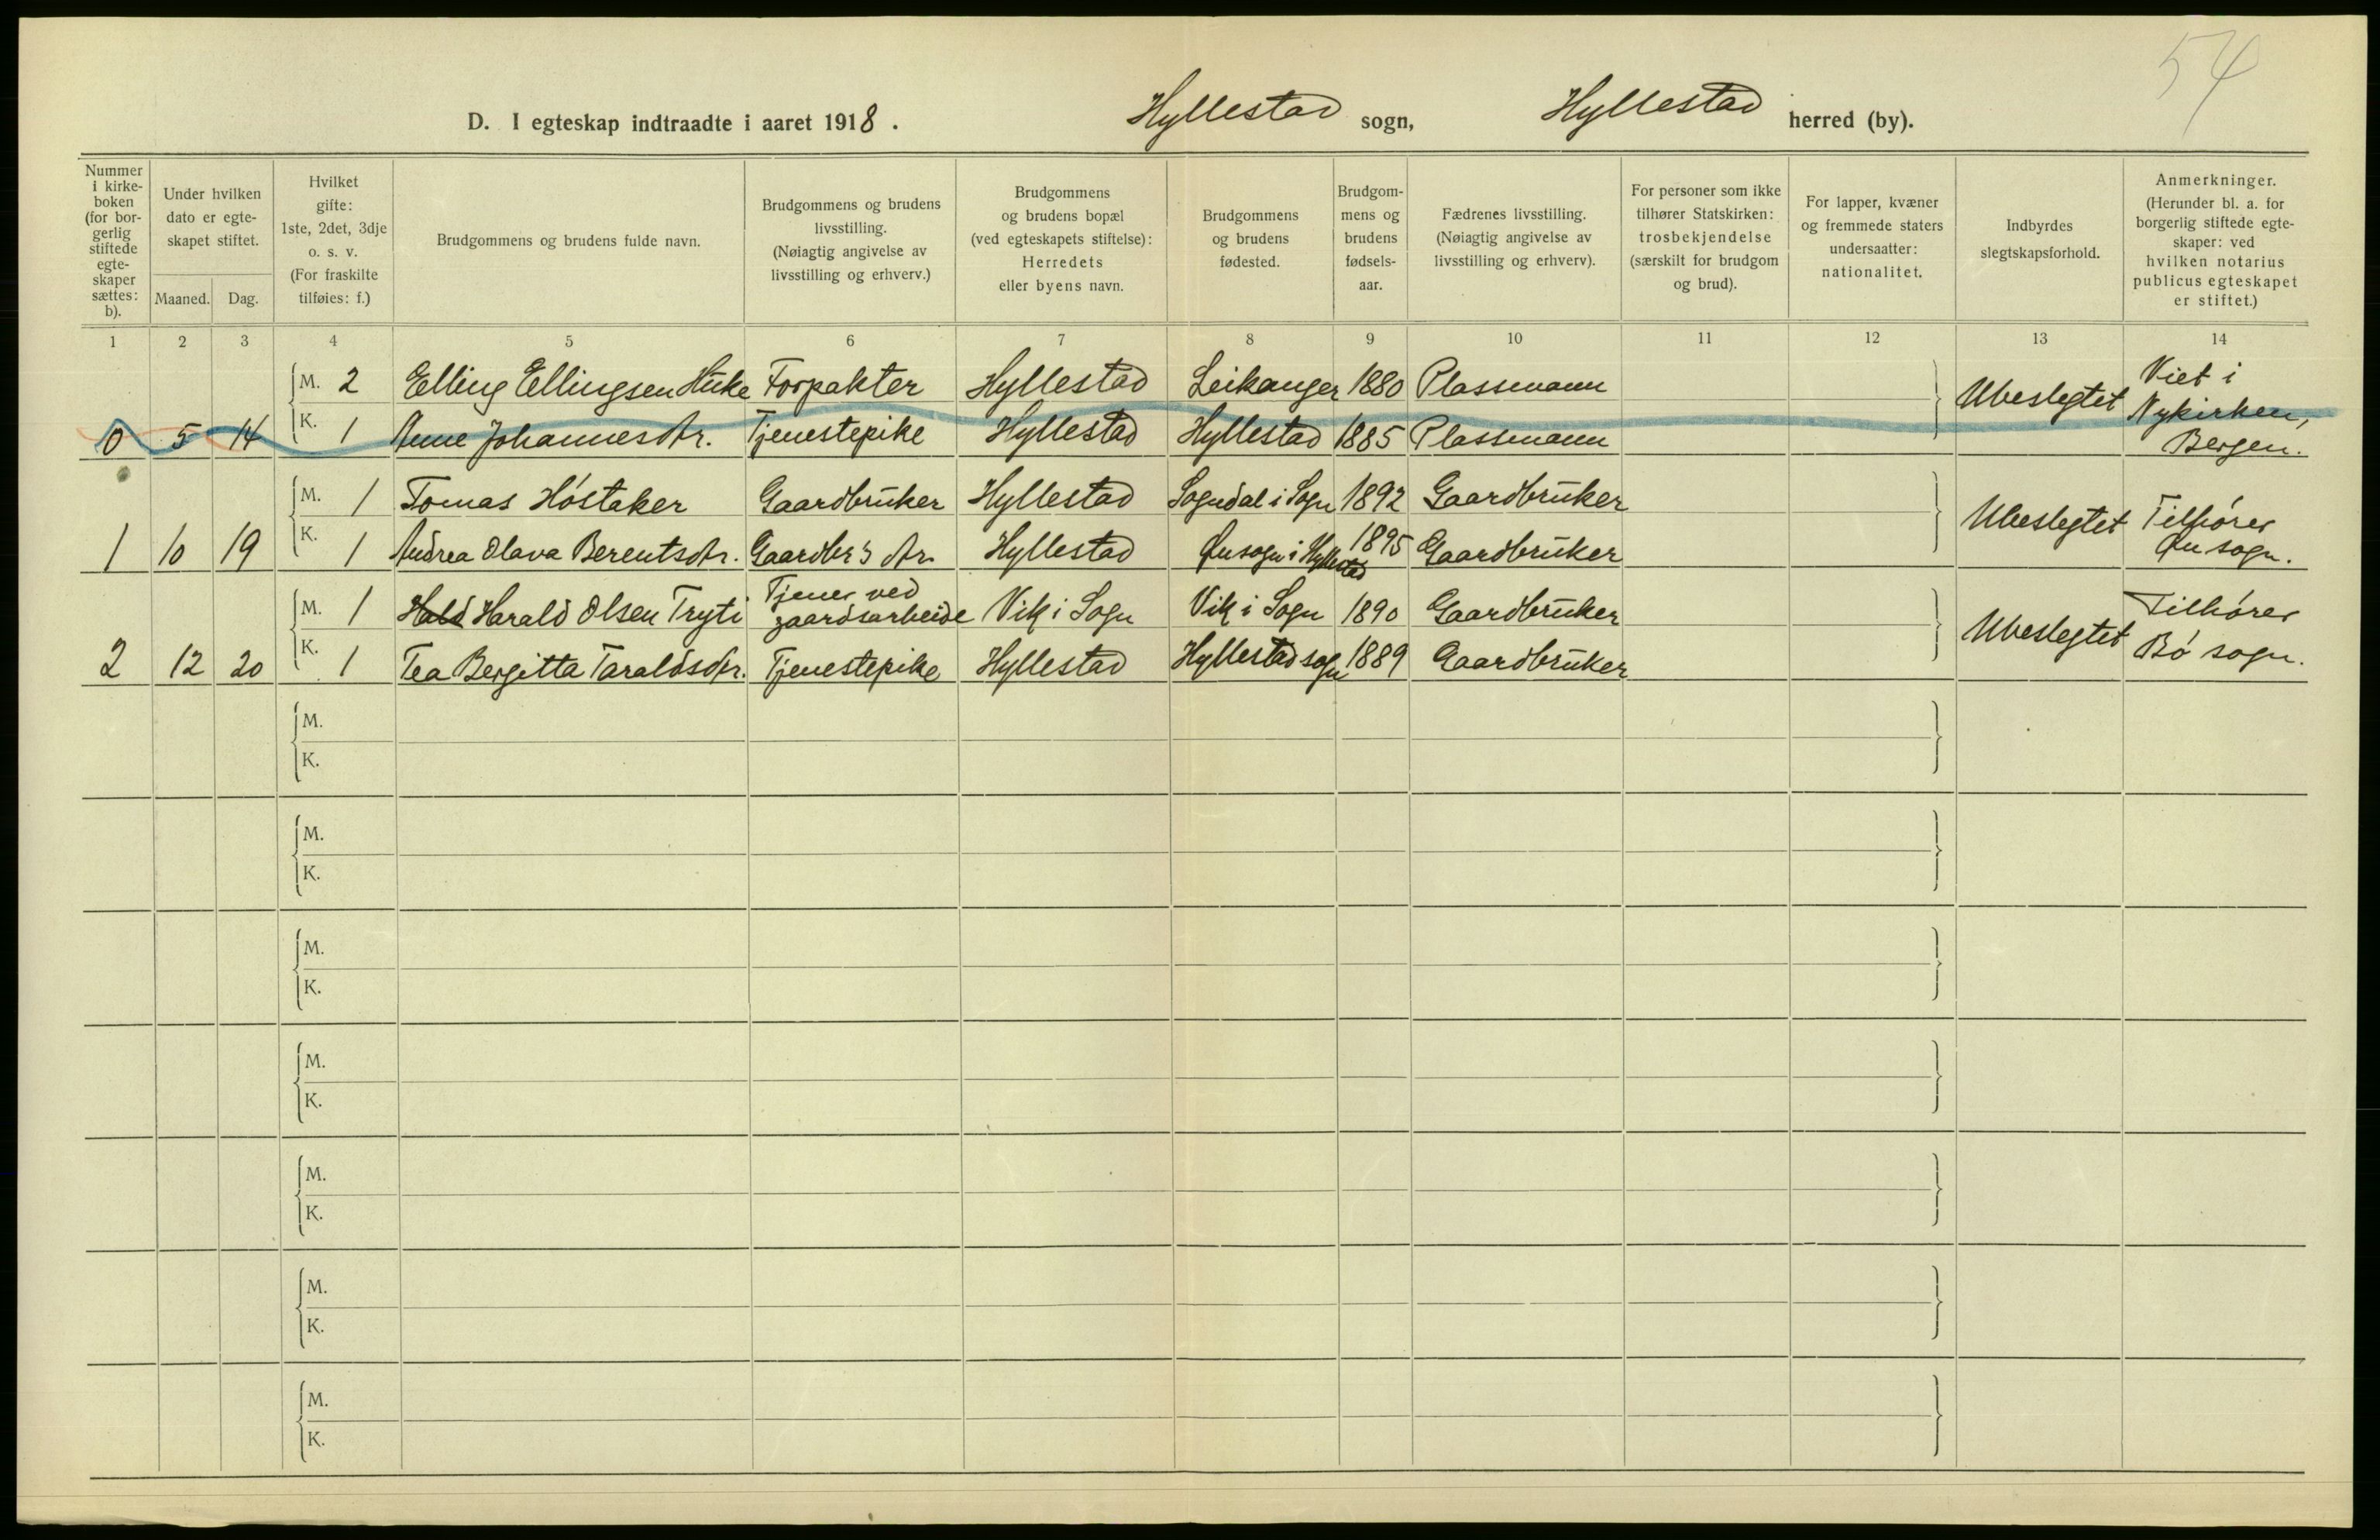 54
D. I egteskap indtraadte i aaret 1918. Hyllestad sogn, Hyllestad herred (by).
Nummer i kirke-boken (for bor-gerlig stiftede egte-skaper sættes: b).
Under hvilken dato er egte-skapet stiftet.
Maaned. Dag.
Hvilket gifte: 1ste, 2det, 3dje o. s. v. (For fraskilte tilføies: f.)
Brudgommens og brudens fulde navn.
Brudgommens og brudens livsstilling. (Nøiagtig angivelse av livsstilling og erhverv.)
Brudgommens og brudens bopæl (ved egteskapets stiftelse): Herredets eller byens navn.
Brudgommens og brudens fødested.
Brudgom-mens og brudens fødsels-aar.
Fædrenes livsstilling. (Nøiagtig angivelse av livsstilling og erhverv).
For personer som ikke tilhører Statskirken: trosbekjendelse (særskilt for brudgom og brud).
For lapper, kvæner og fremmede staters undersaatter: nationalitet.
Indbyrdes slegtskapsforhold.
Anmerkninger. (Herunder bl. a. for borgerlig stiftede egte-skaper: ved hvilken notarius publicus egteskapet er stiftet.)
1 2 3 4 5 6 7 8 9 10 11 12 13 14
M. 2 Elling Ellingsen Huke Forpakter Hyllestad Leikanger 1880 Plassmann Ubeslegtet Viet i Nykirken, Bergen.
0 5 14 K. 1 Anne Johannesdtr. Tjenestepike Hyllestad Hyllestad 1885 Plassmann
M. 1 Tomas Høstaker Gaardbruker Hyllestad Sogndal i Sogn 1892 Gaardbruker Ubeslegtet Tilhører Øn sogn.
1 10 19 K. 1 Andrea Olava Berentsdtr. Gaardbr's dtr. Hyllestad Øn sogn i Hyllestad 1895 Gaardbruker
M. 1 Hald Harald Olsen Tryti Tjener ved gaardsarbeide Vik i Sogn Vik i Sogn 1890 Gaardbruker Ubeslegtet Tilhører Bø sogn.
2 12 20 K. 1 Tea Bergitta Taraldsdtr. Tjenestepike Hyllestad Hyllestad sogn 1889 Gaardbruker
M.
K.
M.
K.
M.
K.
M.
K.
M.
K.
M.
K.
M.
K.